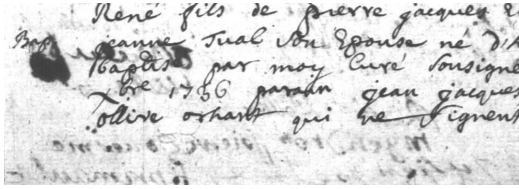 René fils de pierre jacques E
Bap jeanne Tual son Epouse né d'h
Baptis par moy Curé sousigne
xbre 1756 parain jean jacques
ollive orhant qui ne signent